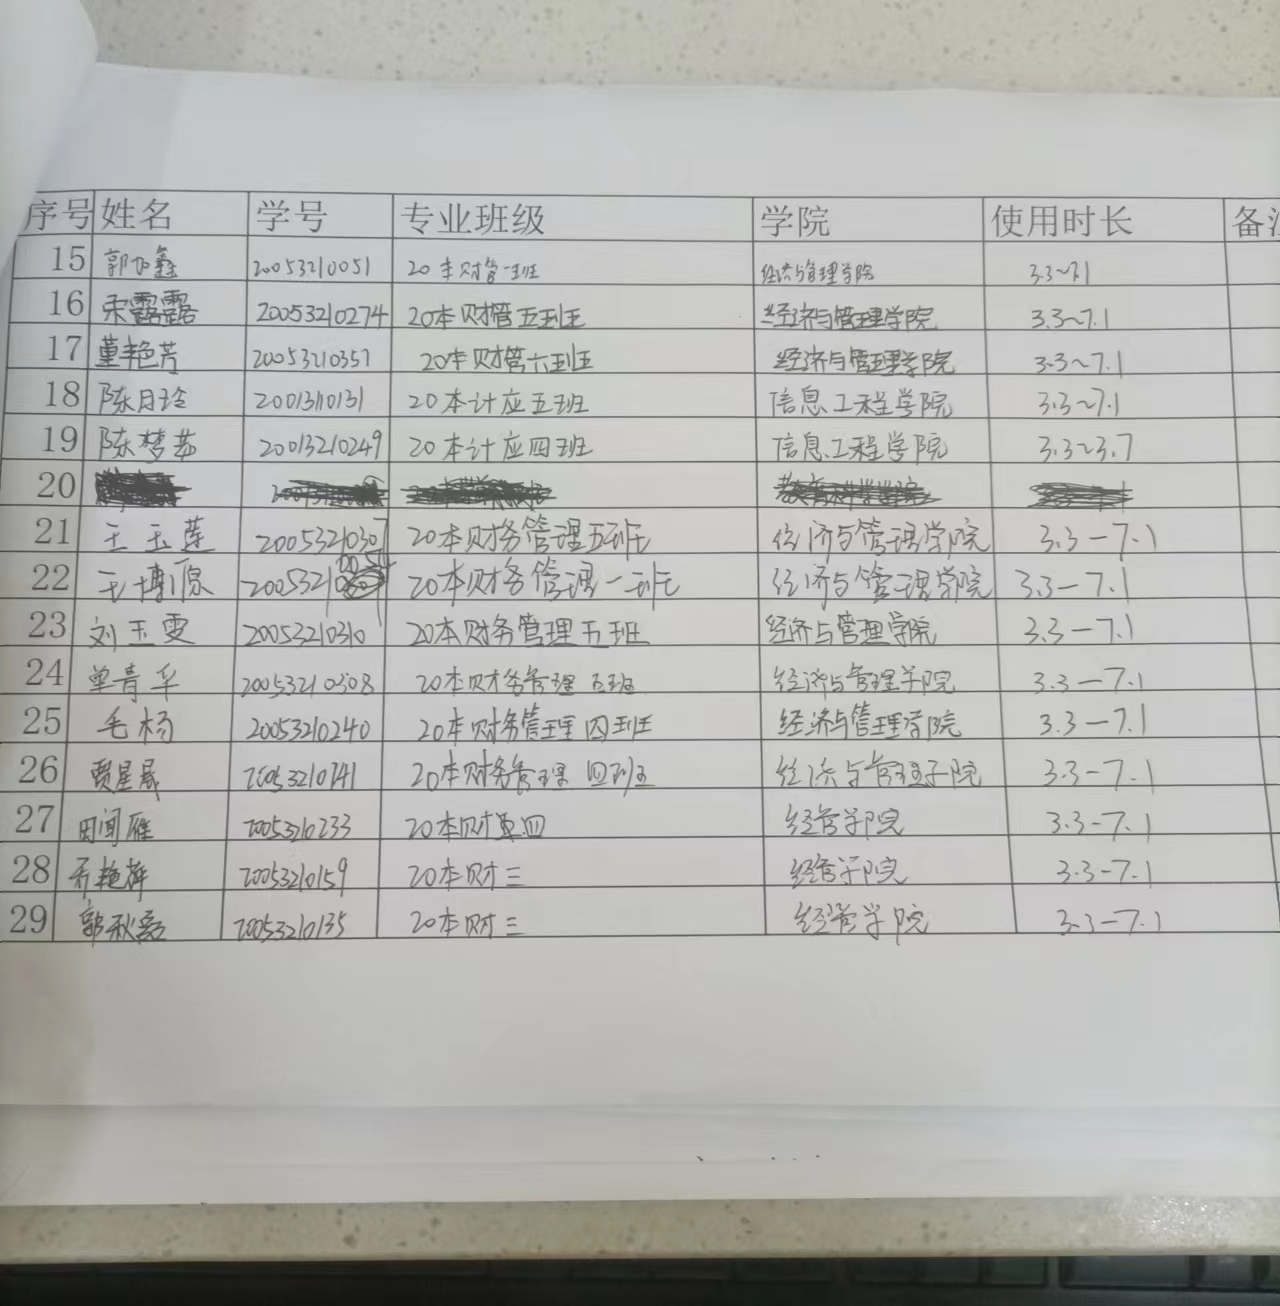 序号 姓名 学号 专业班级 学院 使用时长 备注
15 郭加鑫 20053210051 20本财管一班 经济与管理学院 3.3~7.1
16 宋露露 20053210274 20本财管五班 经济与管理学院 3.3~7.1
17 董艳芳 20053210357 20本财管六班 经济与管理学院 3.3~7.1
18 陈月玲 20013110131 20本计应五班 信息工程学院 3.3~7.1
19 陈梦茹 20013210249 20本计应四班 信息工程学院 3.3~3.7
20
21 王玉莲 20053210307 20本财务管理五班 经济与管理学院 3.3-7.1
22 王博源 20053210054 20本财务管理一班 经济与管理学院 3.3-7.1
23 刘玉雯 20053210310 20本财务管理五班 经济与管理学院 3.3-7.1
24 单青华 20053210308 20本财务管理五班 经济与管理学院 3.3-7.1
25 毛杨 20053210240 20本财务管理四班 经济与管理学院 3.3-7.1
26 贾星晟 20053210241 20本财务管理四班 经济与管理学院 3.3-7.1
27 田闻雁 20053210233 20本财四 经管学院 3.3-7.1
28 乔艳 20053210159 20本财三 经管学院 3.3-7.1
29 郭秋 20053210135 20本财三 经管学院 3.3-7.1